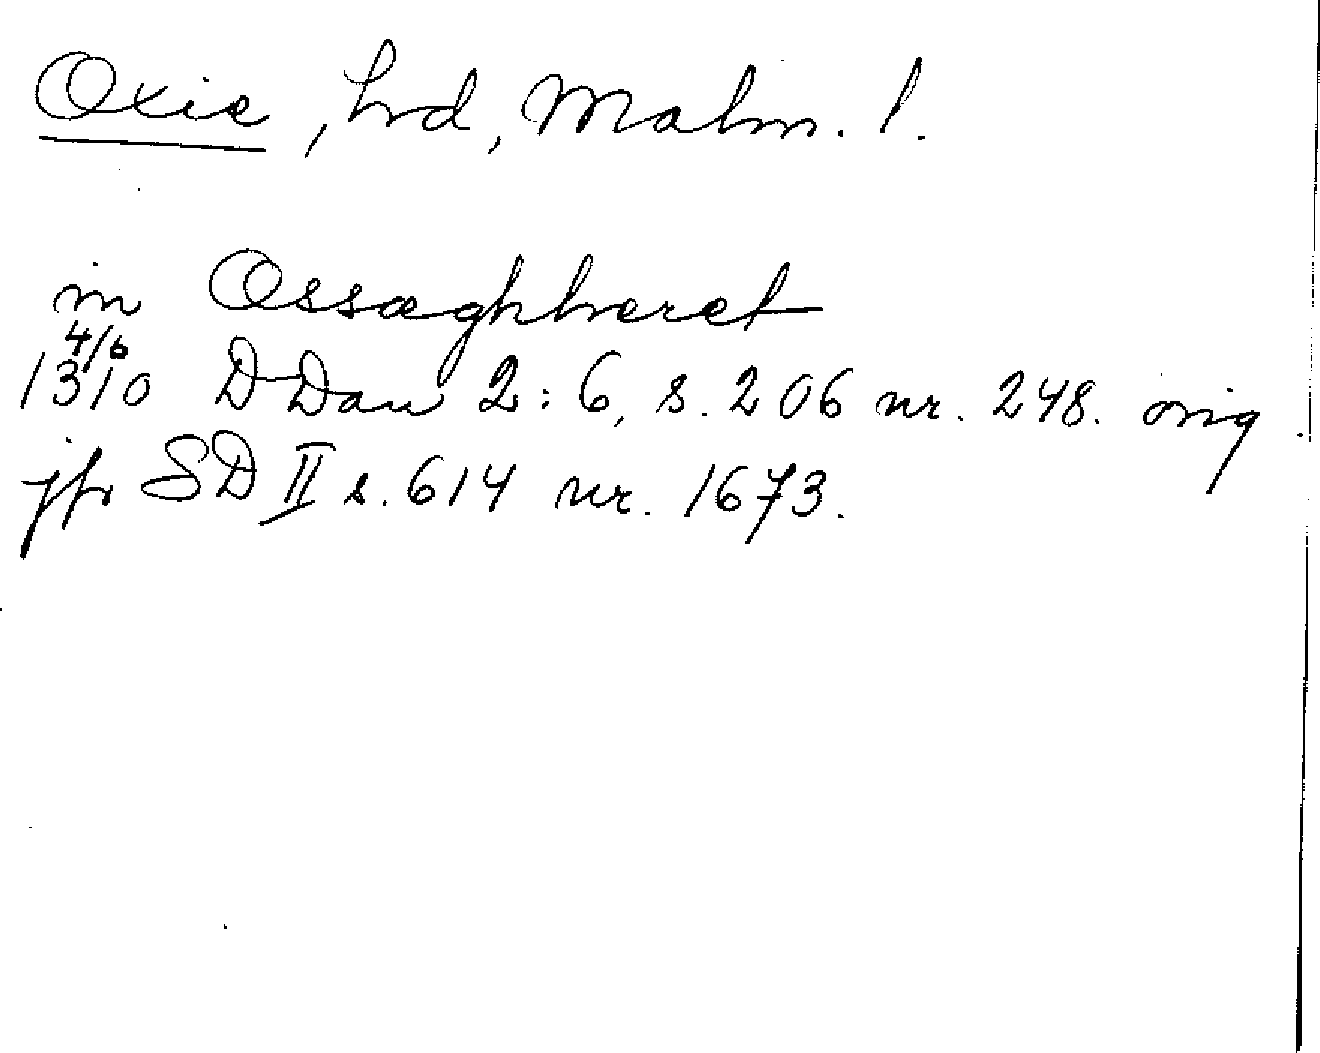 Oxie, hrd, Malm. l.
in Ossæghheret
4/6
1310 DDan 2:6, s. 206 nr. 248. orig
jfr SD II s. 614 nr. 1673.